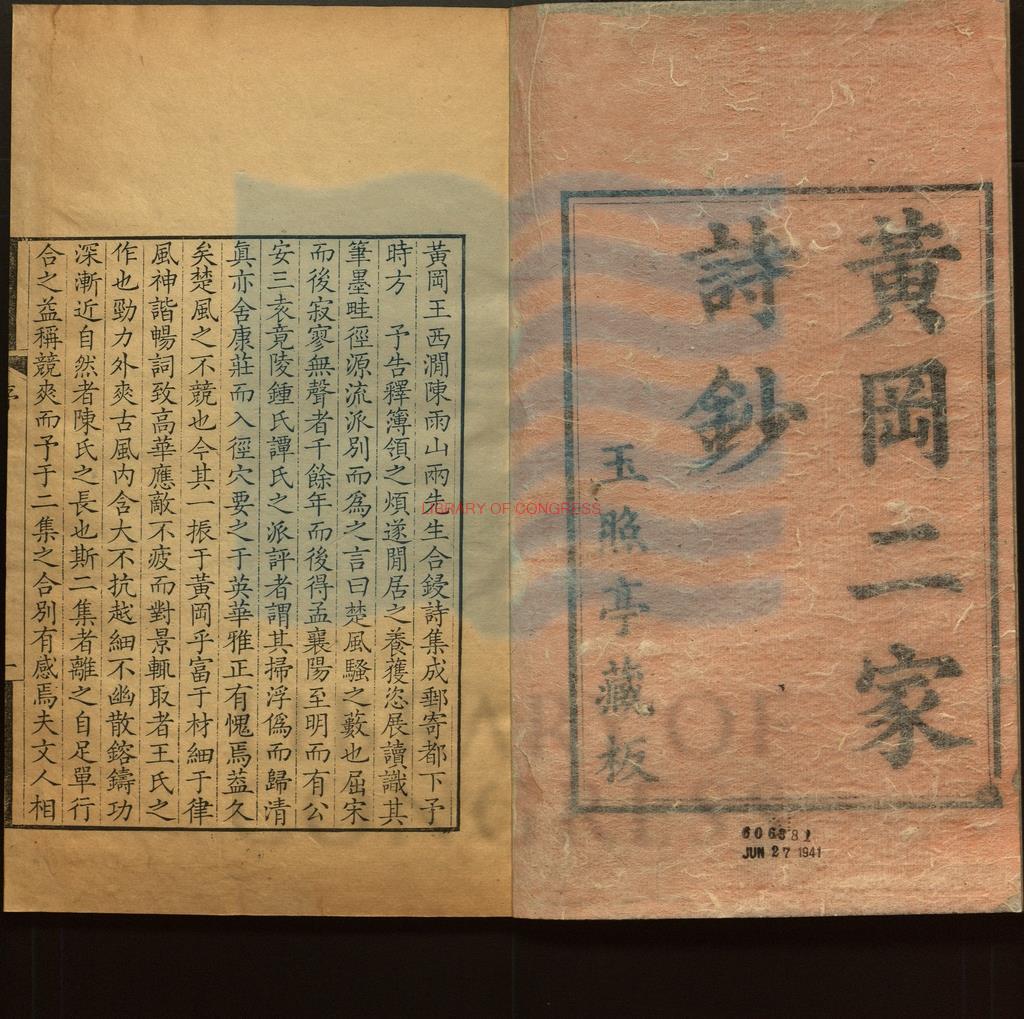 黃岡二家
詩鈔
玉照亭藏板
606381
JUN 27 1941
LIBRARY OF CONGRESS
黃岡王西澗陳雨山兩先生合錽詩集成郵寄都下予
時方 予告釋簿領之煩遂閒居之養獲恣展讀識其
筆墨畦徑源流派別而爲之言曰楚風騷之藪也屈宋
而後寂寥無聲者千餘年而後得孟襄陽至明而有公
安三袁竟陵鍾氏譚氏之派評者謂其掃浮僞而歸清
眞亦舍康莊而入徑穴要之于英華雅正有愧焉葢久
矣楚風之不競也今其一振于黃岡乎富于材細于律
風神諧暢詞致高華應敵不疲而對景輒取者王氏之
作也勁力外爽古風內含大不抗越細不幽散鎔鑄功
深漸近自然者陳氏之長也斯二集者離之自足單行
合之益稱競爽而予于二集之合別有感焉夫文人相
序
一